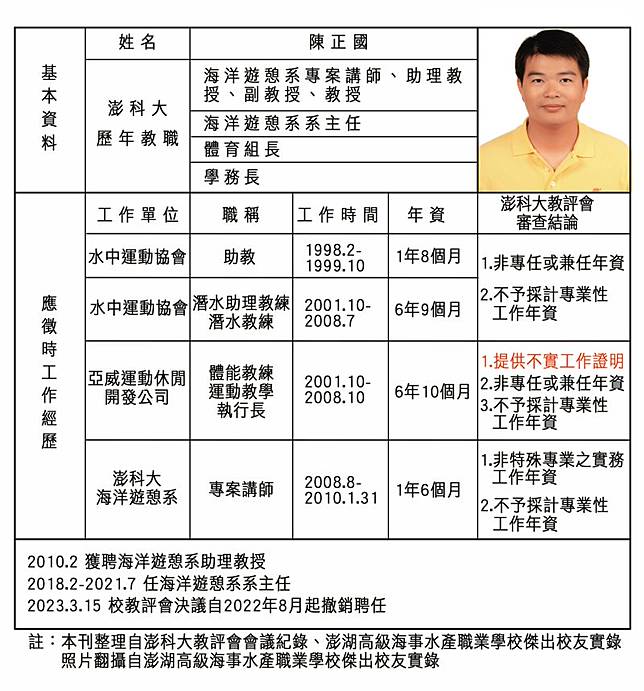 基本資料
姓名
陳正國
澎科大
歷年教職
海洋遊憩系專案講師、助理教
授、副教授、教授
海洋遊憩系系主任
體育組長
學務長
應徵時工作經歷
工作單位
職稱
工作時間
年資
澎科大教評會
審查結論
水中運動協會
助教
1998.2-
1999.10
1年8個月
水中運動協會
潛水助理教練
潛水教練
2001.10-
2008.7
6年9個月
1.非專任或兼任年資
2.不予採計專業性
工作年資
亞威運動休閒
開發公司
體能教練
運動教學
執行長
2001.10-
2008.10
6年10個月
1.提供不實工作證明
2.非專任或兼任年資
3.不予採計專業性
工作年資
澎科大
海洋遊憩系
專案講師
2008.8-
2010.1.31
1年6個月
1.非特殊專業之實務
工作年資
2.不予採計專業性
工作年資
2010.2 獲聘海洋遊憩系助理教授
2018.2-2021.7 任海洋遊憩系系主任
2023.3.15 校教評會決議自2022年8月起撤銷聘任
註：本刊整理自澎科大教評會會議紀錄、澎湖高級海事水產職業學校傑出校友實錄
照片翻攝自澎湖高級海事水產職業學校傑出校友實錄